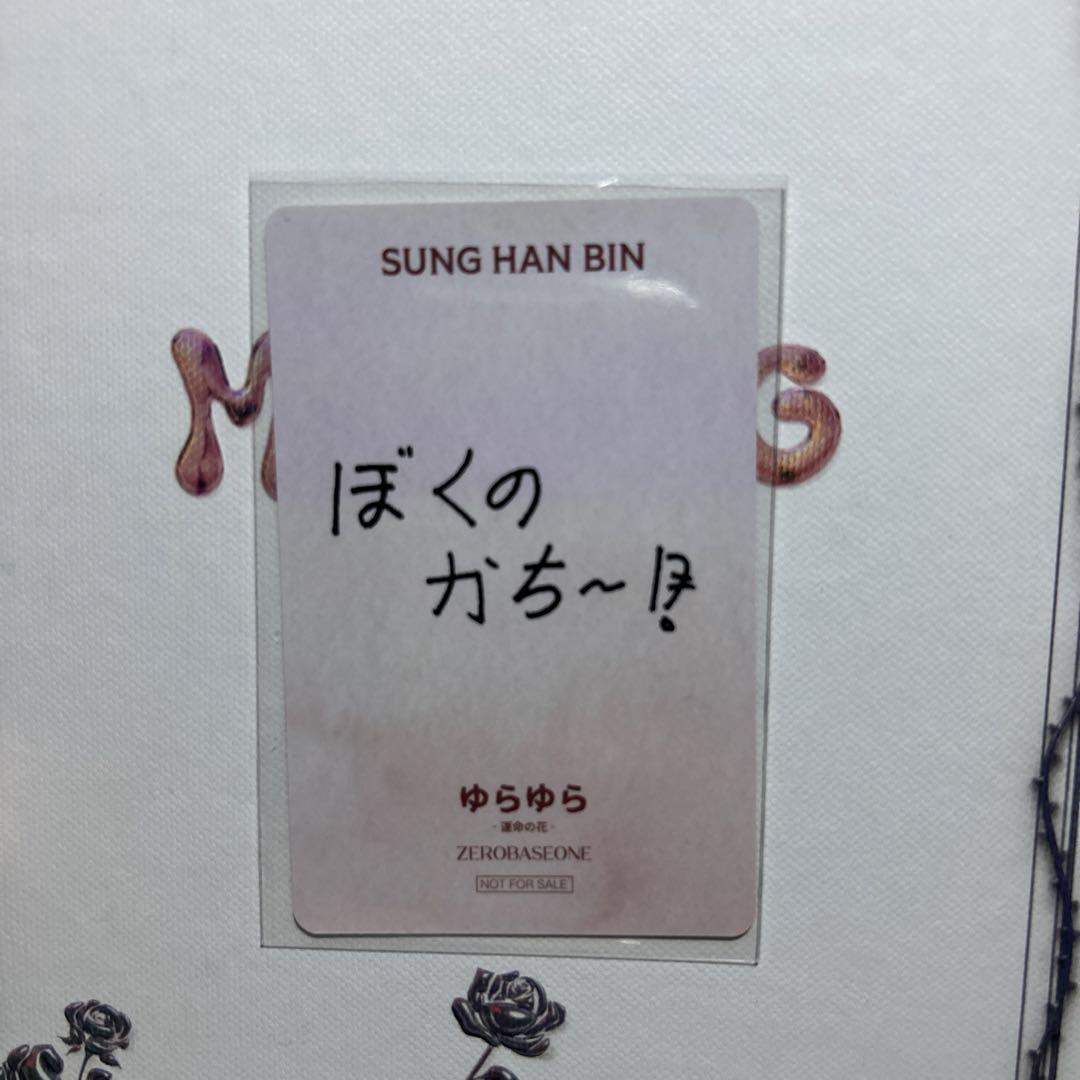 SUNG HAN BIN
M
G
ぼくの
かち〜!
ゆらゆら
- 運命の花 -
ZEROBASEONE
NOT FOR SALE